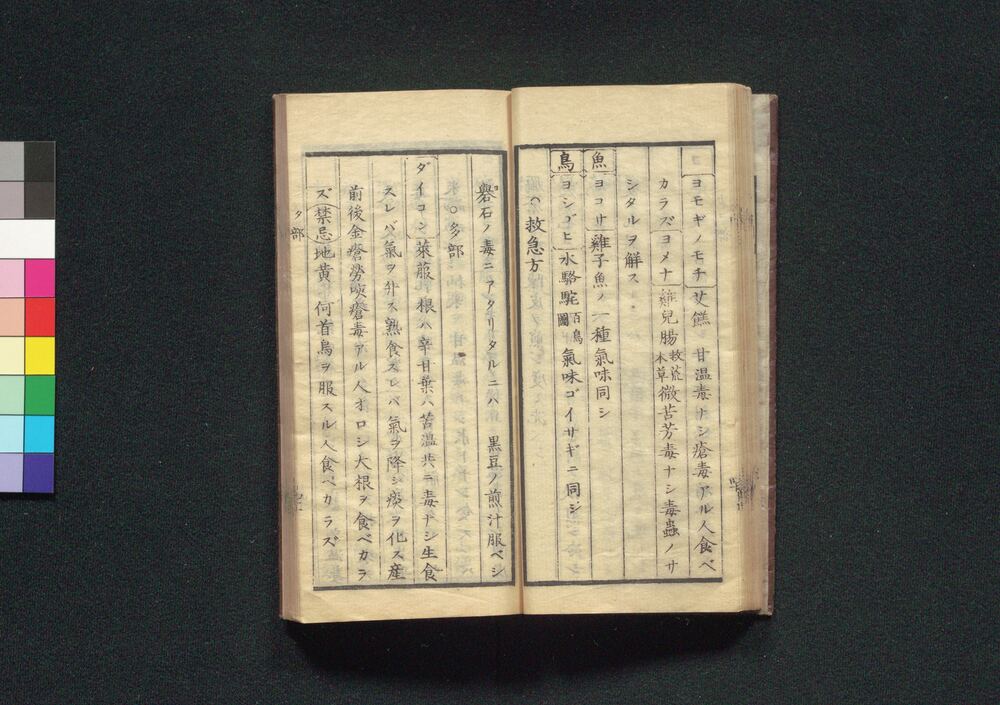 ヨモギノモチ 艾𩞯 甘温毒ナシ瘡毒アル人食ベ
カラズヨメナ 雞兒腸 救荒本草 微苦芳毒ナシ毒蟲ノサ
シタルヲ解ス
魚 ヨコサ 雞子魚ノ一種氣味同シ
鳥 ヨシゴヒ 水駱駝 百鳥圖 氣味ゴイサギニ同ジ
○救急方
礜石ノ毒ニアタリタルニハ 黒豆ノ煎汁服ベシ
○多部
ダイコン 萊菔根ハ辛甘葉ハ苦温共ニ毒ナシ生食
スレバ氣ヲ升ス熟食スレバ氣ヲ降シ痰ヲ化ス産
前後金瘡勞咳瘡毒アル人オロシ大根ヲ食ベカラ
ズ 禁忌 地黄 何首烏ヲ服スル人食ベカラズ
タ部